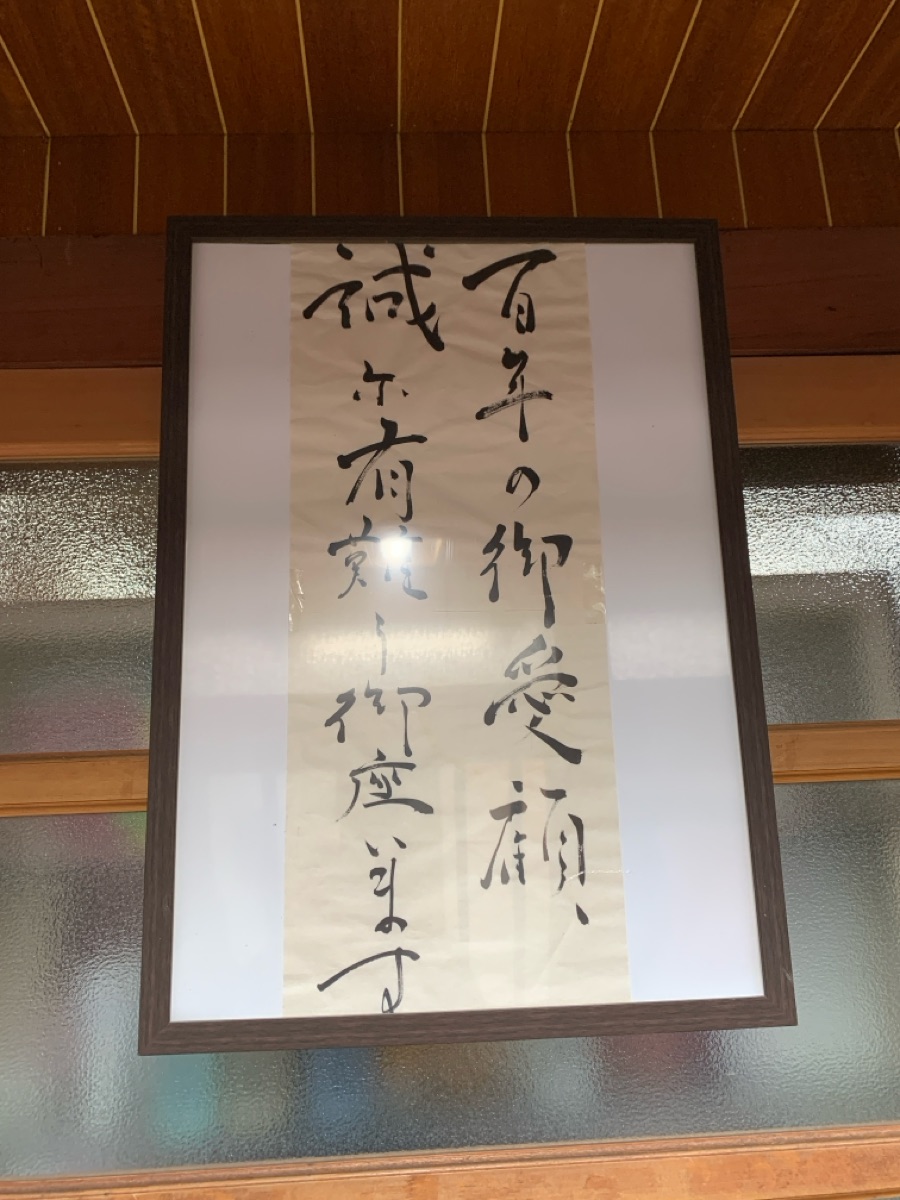 百年の御愛顧、
誠尓有難う御座います